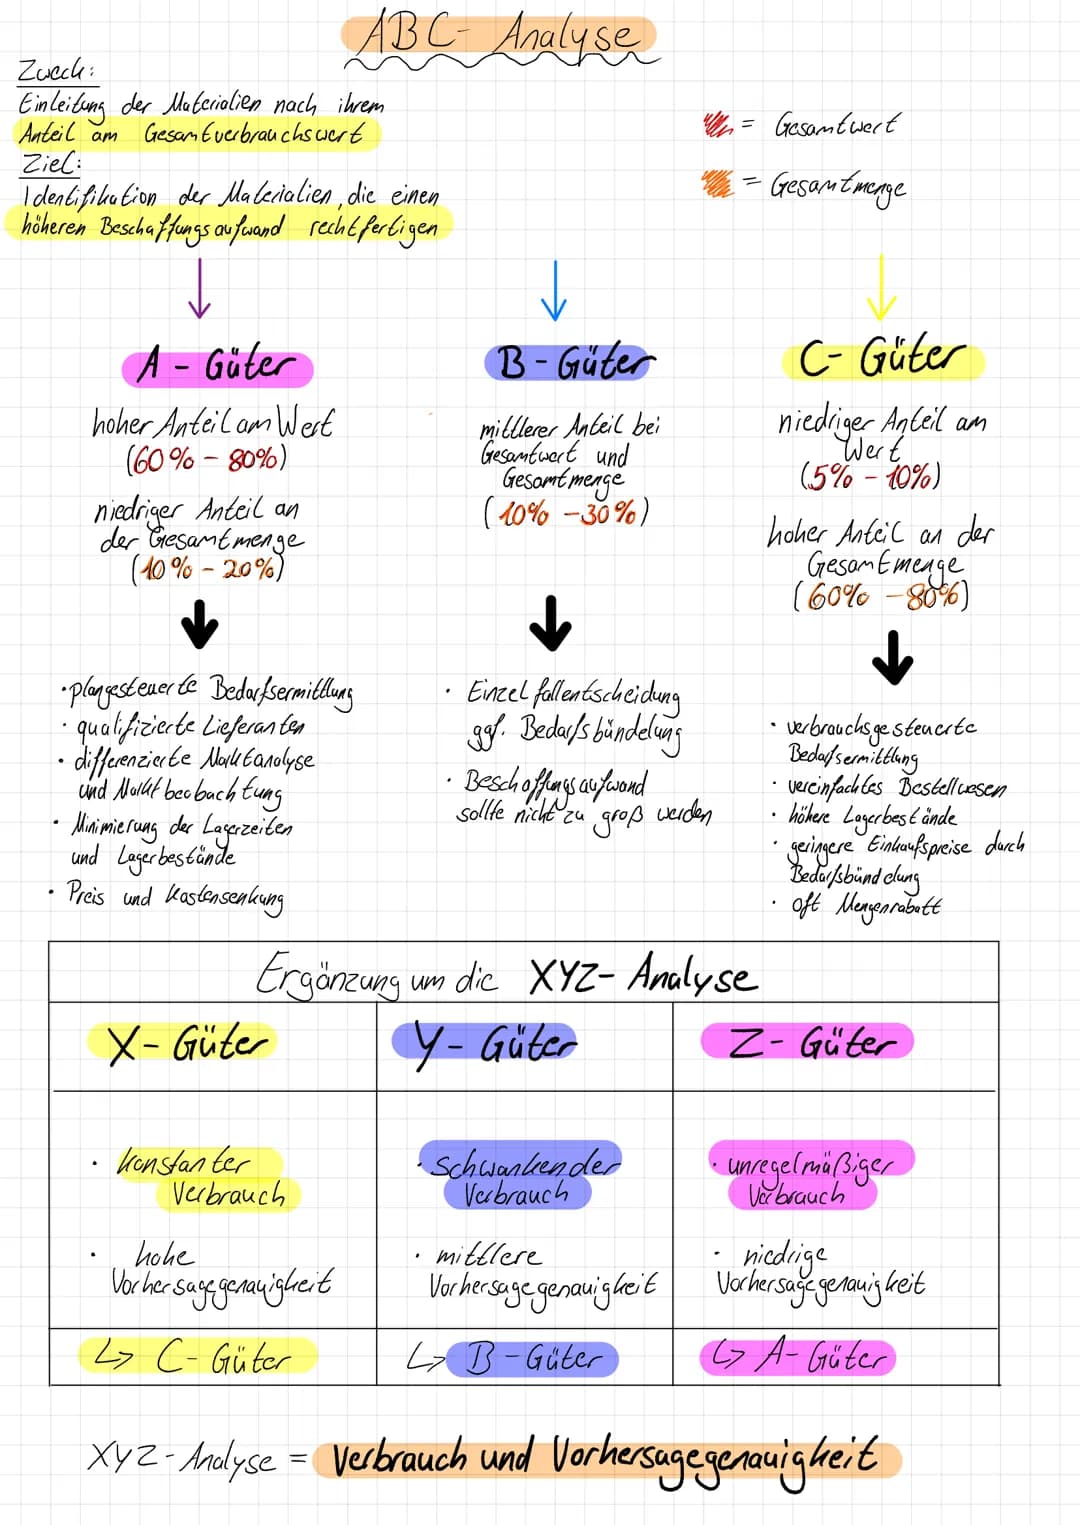 ABC- Analyse
Zweck:
Einleitung der Materialien nach ihrem
Anteil am Gesamtverbrauchswert
Ziel:
Identifikation der Materialien, die einen
höheren Beschaffungsaufwand rechtfertigen
= Gesamtwert
= Gesamtmenge
A - Güter
hoher Anteil am Wert
(60% - 80%)
niedriger Anteil an
der Gesamtmenge
(10% - 20%)
• plangesteuerte Bedarfsermittlung
• qualifizierte Lieferanten
• differenzierte Marktanalyse
und Marktbeobachtung
• Minimierung der Lagerzeiten
und Lagerbestände
• Preis und Kostensenkung
B - Güter
mittlerer Anteil bei
Gesamtwert und
Gesamtmenge
(10% - 30%)
• Einzelfallentscheidung
ggf. Bedarfsbündelung
• Beschaffungsaufwand
sollte nicht zu groß werden
C- Güter
niedriger Anteil am
Wert
(5% - 10%)
hoher Anteil an der
Gesamtmenge
(60% - 80%)
• verbrauchsgesteuerte
Bedarfsermittlung
• vereinfachtes Bestellwesen
• höhere Lagerbestände
• geringere Einkaufspreise durch
Bedarfsbündelung
• oft Mengenrabatt
Ergänzung um die XYZ- Analyse
X- Güter
Y- Güter
Z- Güter
• konstanter
Verbrauch
• hohe
Vorhersagegenauigkeit
• schwankender
Verbrauch
• mittlere
Vorhersagegenauigkeit
• unregelmäßiger
Verbrauch
• niedrige
Vorhersagegenauigkeit
↳ C- Güter
↳ B - Güter
↳ A- Güter
XYZ - Analyse = Verbrauch und Vorhersagegenauigkeit